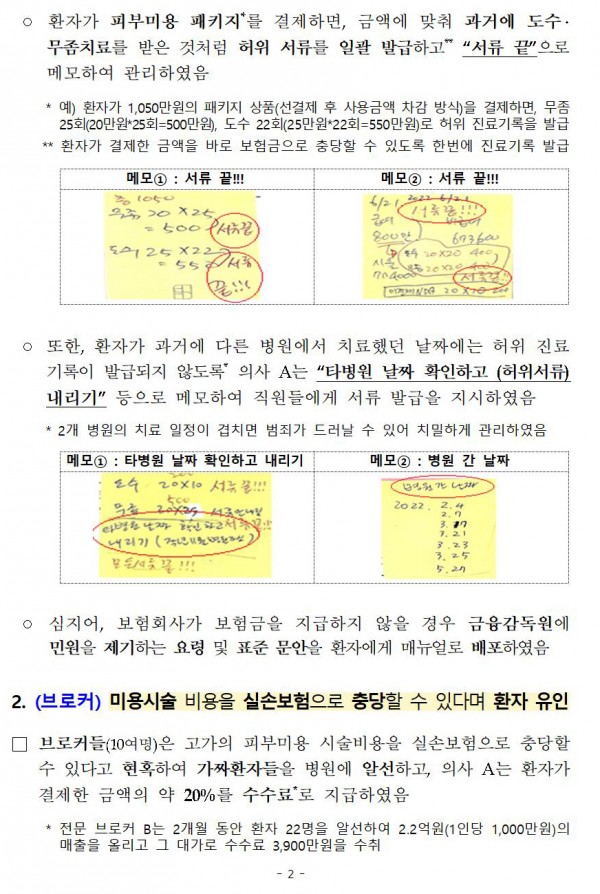 ○ 환자가 피부미용 패키지*를 결제하면, 금액에 맞춰 과거에 도수·
무좀치료를 받은 것처럼 허위 서류를 일괄 발급하고** “서류 끝”으로
메모하여 관리하였음
* 예) 환자가 1,050만원의 패키지 상품(선결제 후 사용금액 차감 방식)을 결제하면, 무좀
25회(20만원*25회=500만원), 도수 22회(25만원*22회=550만원)로 허위 진료기록을 발급
** 환자가 결제한 금액을 바로 보험금으로 충당할 수 있도록 한번에 진료기록 발급
메모① : 서류 끝!!!
총 1050
무좀 20 X 25
= 500 서류끝
도수 25 X 22
= 550 서류
끝!!!
메모② : 서류 끝!!!
6/21 2022 6/21
서류끝!!!
급여 비급여
800만 693600
도수 20X20 400
무좀 20X20 400
서류끝!!
○ 또한, 환자가 과거에 다른 병원에서 치료했던 날짜에는 허위 진료
기록이 발급되지 않도록* 의사 A는 “타병원 날짜 확인하고 (허위서류)
내리기” 등으로 메모하여 직원들에게 서류 발급을 지시하였음
* 2개 병원의 치료 일정이 겹치면 범죄가 드러날 수 있어 치밀하게 관리하였음
메모① : 타병원 날짜 확인하고 내리기
도수 20X10 서류끝!!!
500
무좀 20X25
타병원날짜 확인하고 서류끝!!
내리기
메모② : 병원 간 날짜
병원간 날짜
2022. 2.4
2.7
3.17
3.21
3.23
3.25
5.27
○ 심지어, 보험회사가 보험금을 지급하지 않을 경우 금융감독원에
민원을 제기하는 요령 및 표준 문안을 환자에게 매뉴얼로 배포하였음
2. (브로커) 미용시술 비용을 실손보험으로 충당할 수 있다며 환자 유인
□ 브로커들(10여명)은 고가의 피부미용 시술비용을 실손보험으로 충당할
수 있다고 현혹하여 가짜환자들을 병원에 알선하고, 의사 A는 환자가
결제한 금액의 약 20%를 수수료*로 지급하였음
* 전문 브로커 B는 2개월 동안 환자 22명을 알선하여 2.2억원(1인당 1,000만원)의
매출을 올리고 그 대가로 수수료 3,900만원을 수취
- 2 -